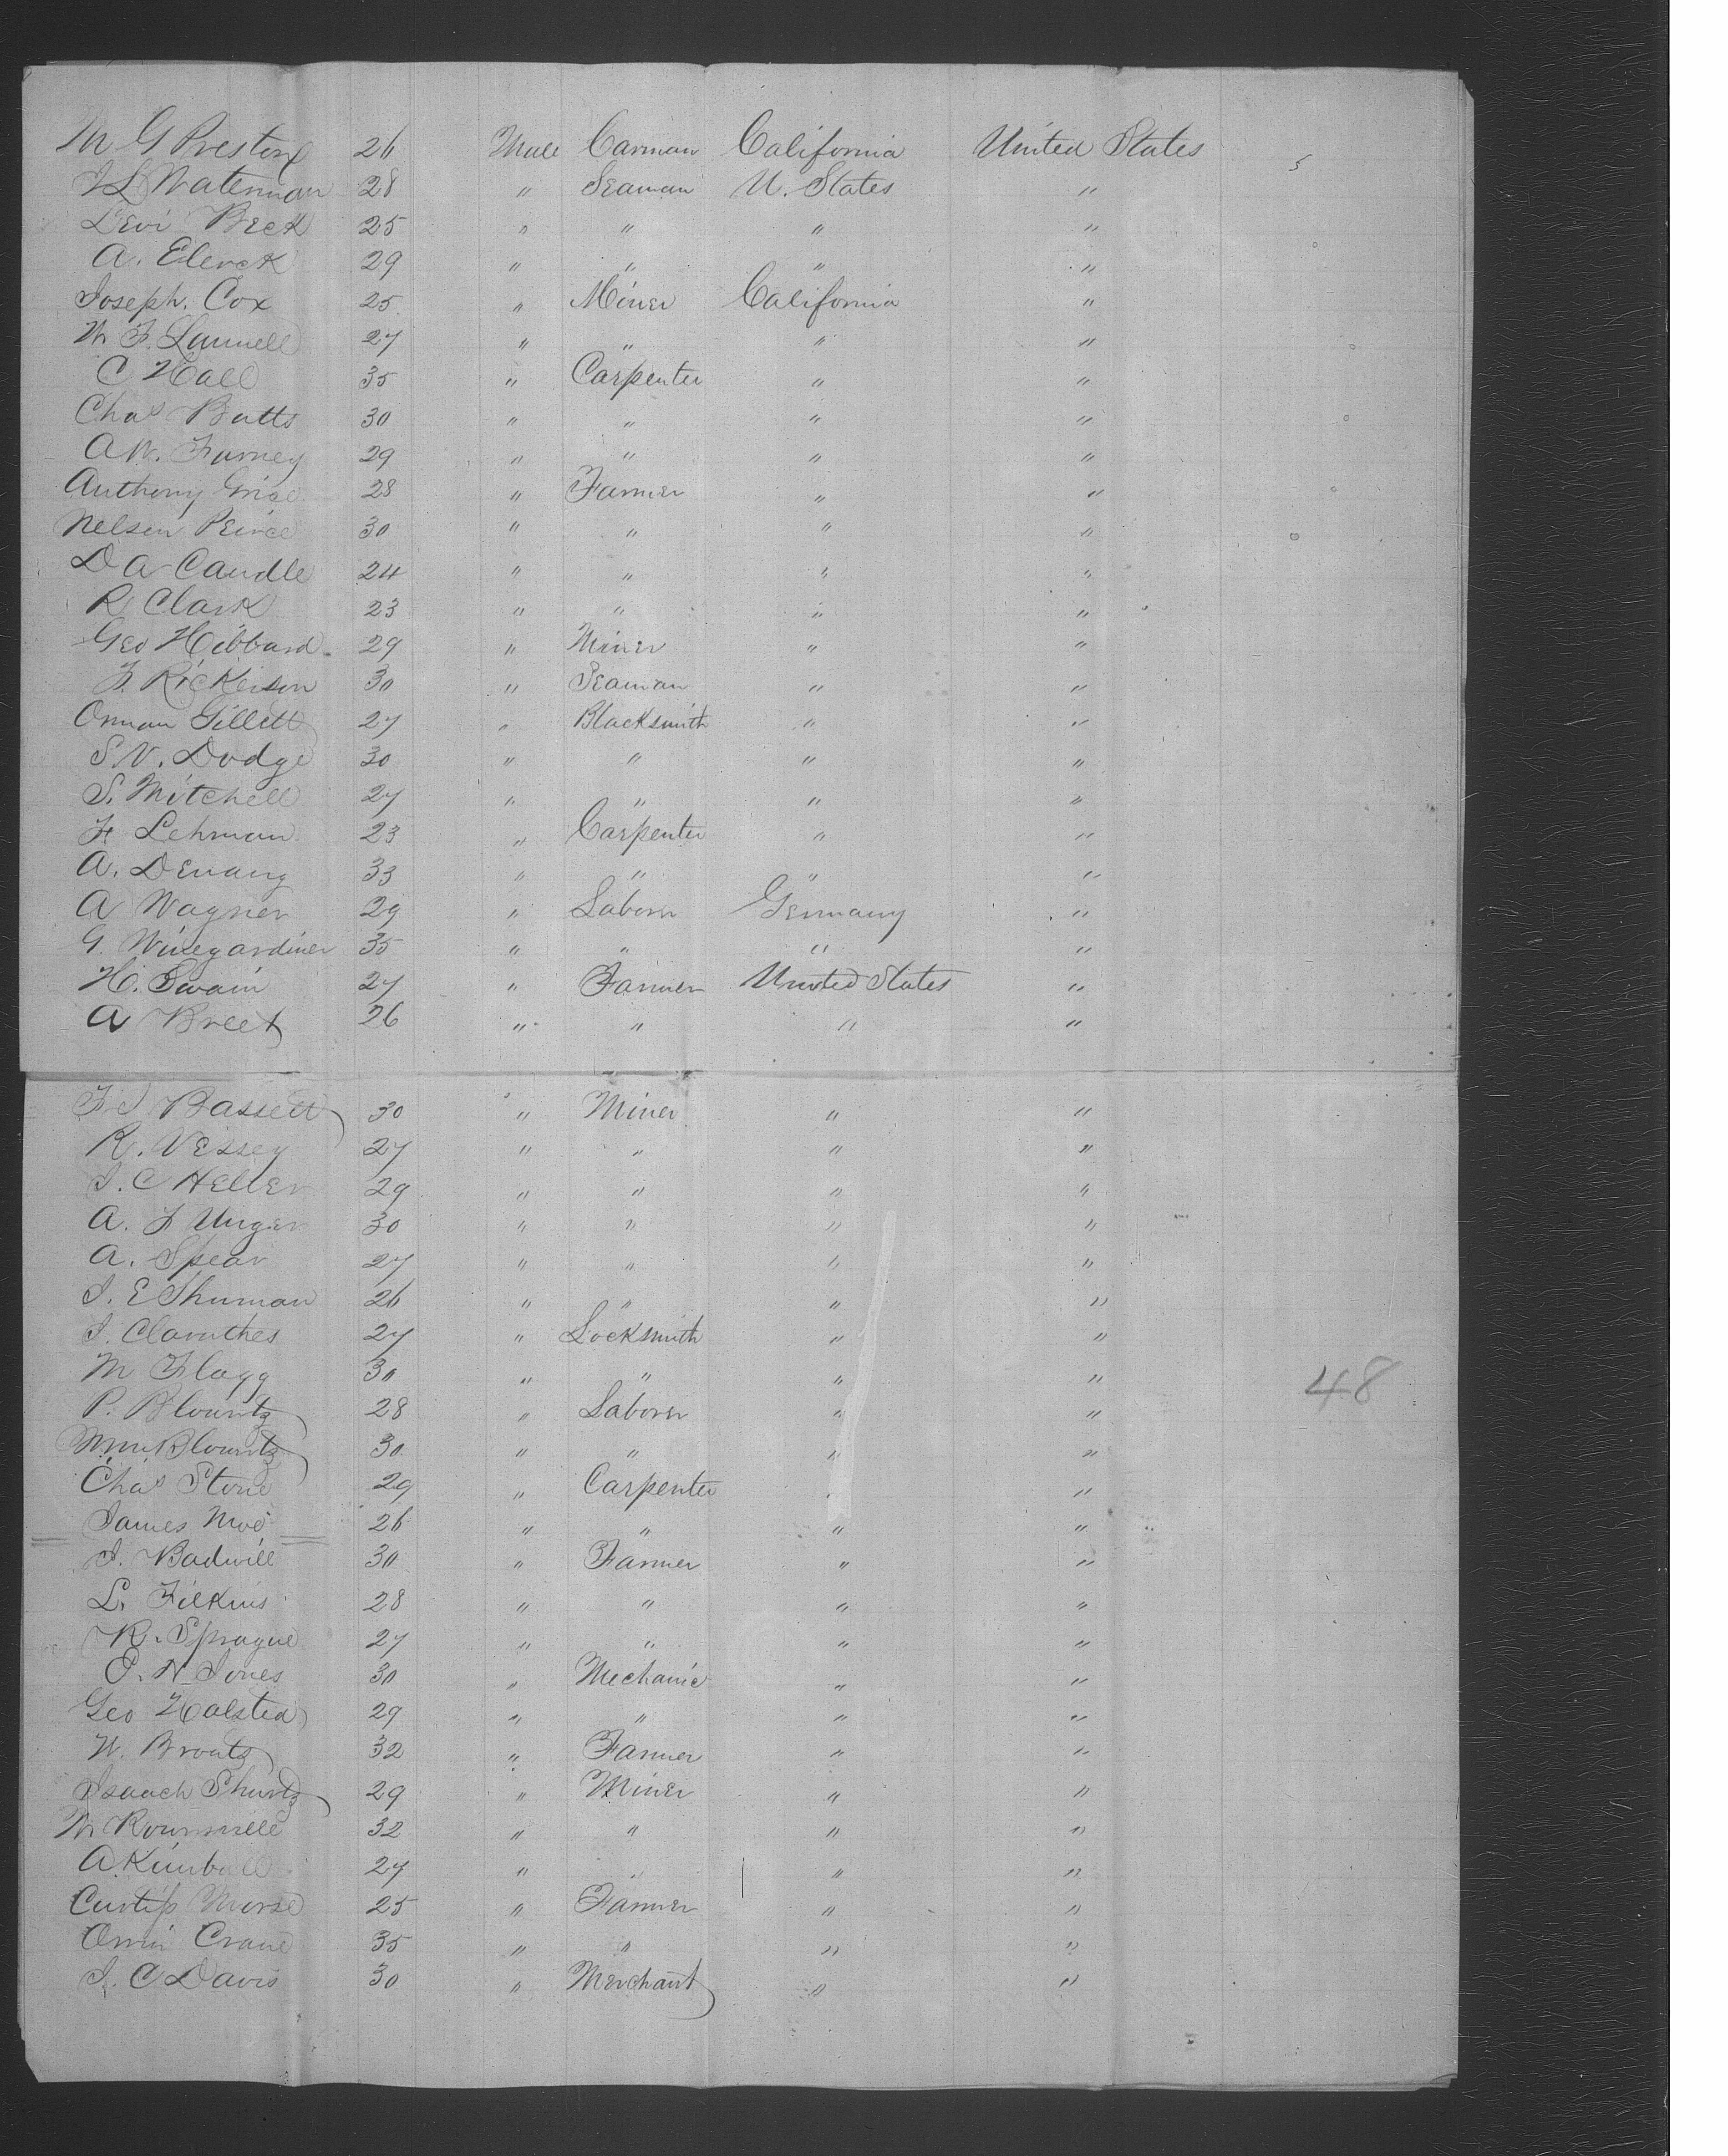 M G Preston 26 Male Carman California United States
J L Waterman 28 " Seaman U. States "
Levi Beck 25 " " " "
A. Elerck 29 " " " "
Joseph. Cox 25 " Miner California "
W. F. Lunnell 27 " " " "
C Hall 35 " Carpenter " "
Chas Butts 30 " " " "
A W. Furney 29 " " " "
Anthony 28 " Farmer " "
Nelson Peirce 30 " " " "
D A Caudle 24 " " " "
R Clark 23 " " " "
Geo Hibbard 29 " Miner " "
F. Rickerson 30 " Seaman " "
Orman Gillett 27 " Blacksmith " "
S. V. Dodge 30 " " " "
S. Mitchell 27 " " " "
F. Lehman 23 " Carpenter " "
A. Denang 33 " " " "
A Wagner 29 " Laborer Germany "
G. Winegardiner 35 " " " "
H. Swain 27 " Farmer United States "
A Breet 26 " " " "
F J Bassett 30 " Miner " "
R. Vessey 27 " " " "
J. C Heller 29 " " " "
A. F Unger 30 " " " "
A. Spear 27 " " " "
J. E Shuman 26 " " " "
J. Claruthes 27 " Locksmith " "
M Flagg 30 " " " "
48
P. Blountz 28 " Laborer " "
Wm Blountz 30 " " " "
Chas Stone 29 " Carpenter " "
James Moe 26 " " " "
J. Badwill 30 " Farmer " "
L. Filkins 28 " " " "
R. Sprague 27 " " " "
E. N Jones 30 " Mechanic " "
Geo Halsted 29 " " " "
W. Broatz 32 " Farmer " "
Isaach Shurtz 29 " Miner " "
32 " " " "
A. Kimball 27 " " " "
Curtis Morse 25 " Farmer " "
Orrin Crane 35 " " " "
J. C Davis 30 " Merchant " "